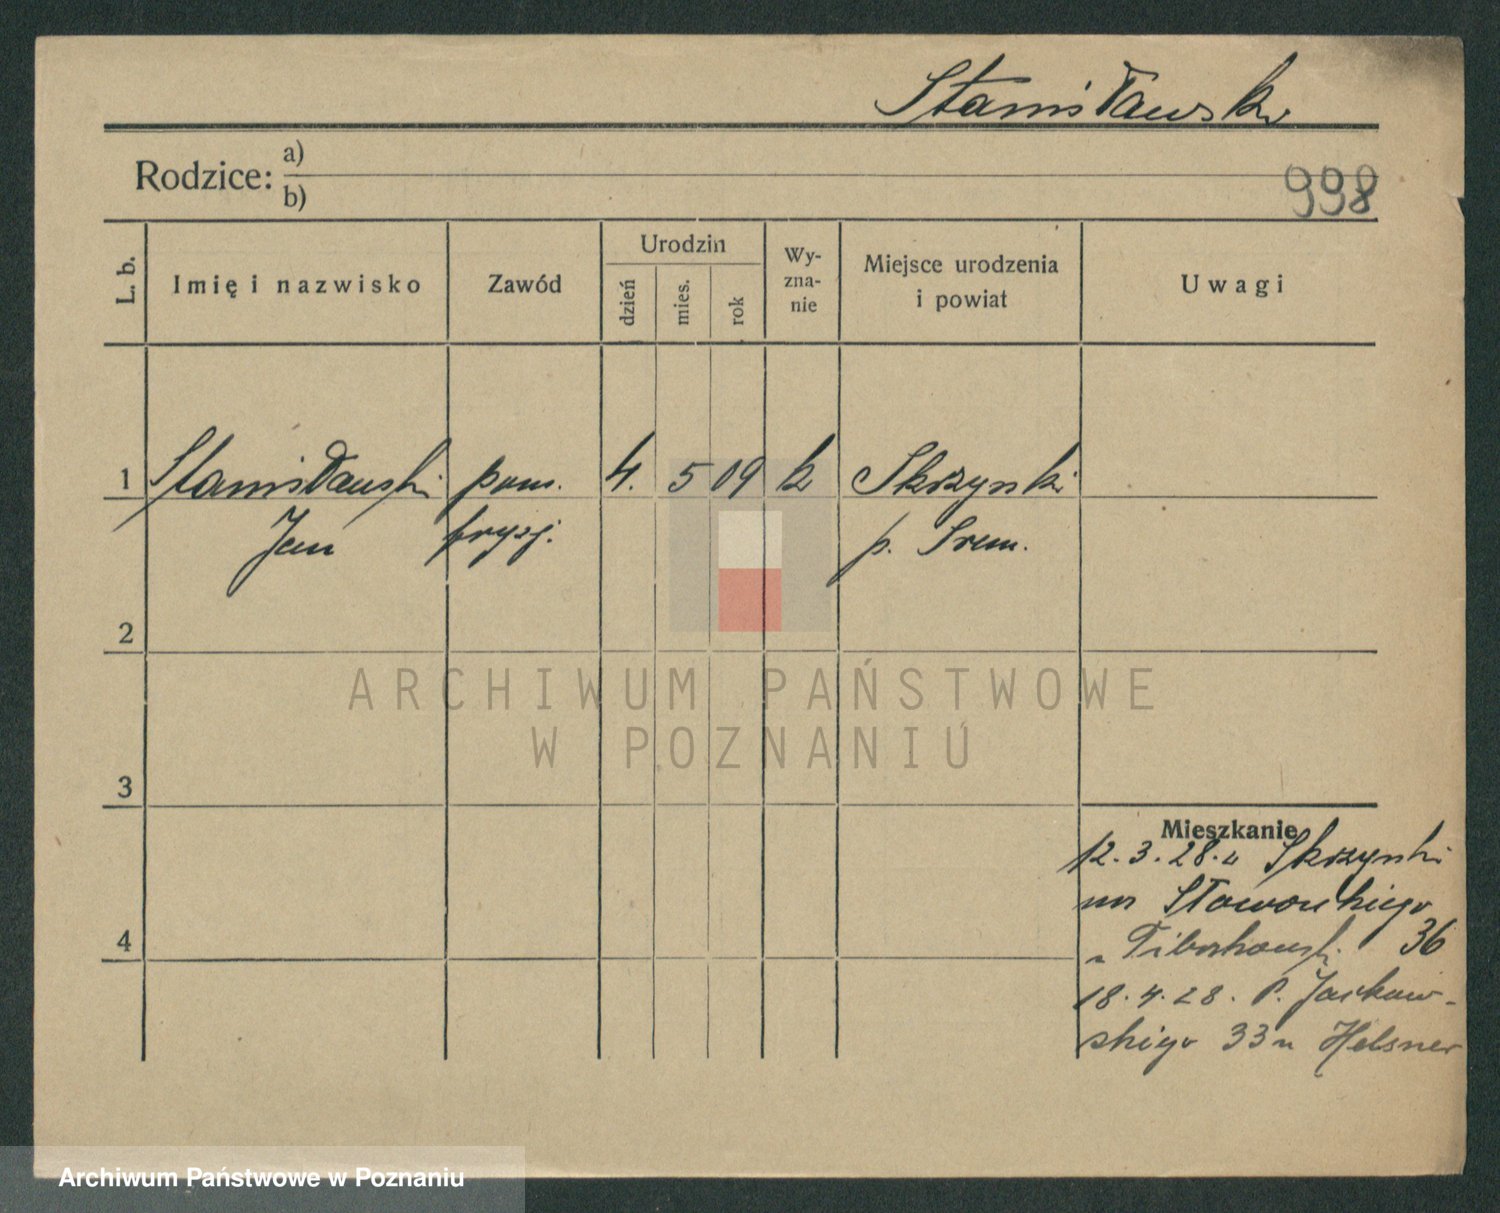 Stanisławski
Rodzice: a)
b)
998
L. b. Imię i nazwisko Zawód Urodzin dzień mies. rok Wy-zna-nie Miejsce urodzenia i powiat Uwagi
1 Stanisławski pom. 4. 5 09 k Skrzynki
Jan fryzj. p. Śrem.
2
ARCHIWUM PAŃSTWOWE
W POZNANIU
3
Mieszkanie
12.3.28. Skrzynki
na Słowackiego
36
4
18.4.28. P. Jackow-
skiego 33 u Helsner
Archiwum Państwowe w Poznaniu